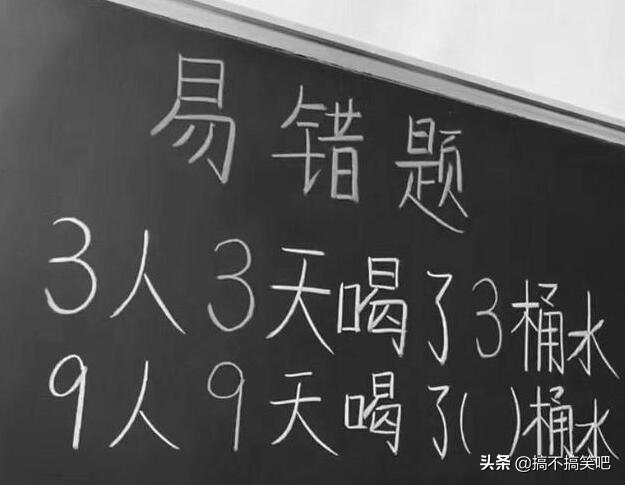 易错题
3人3天喝了3桶水
9人9天喝了( )桶水
头条 @搞不搞笑吧